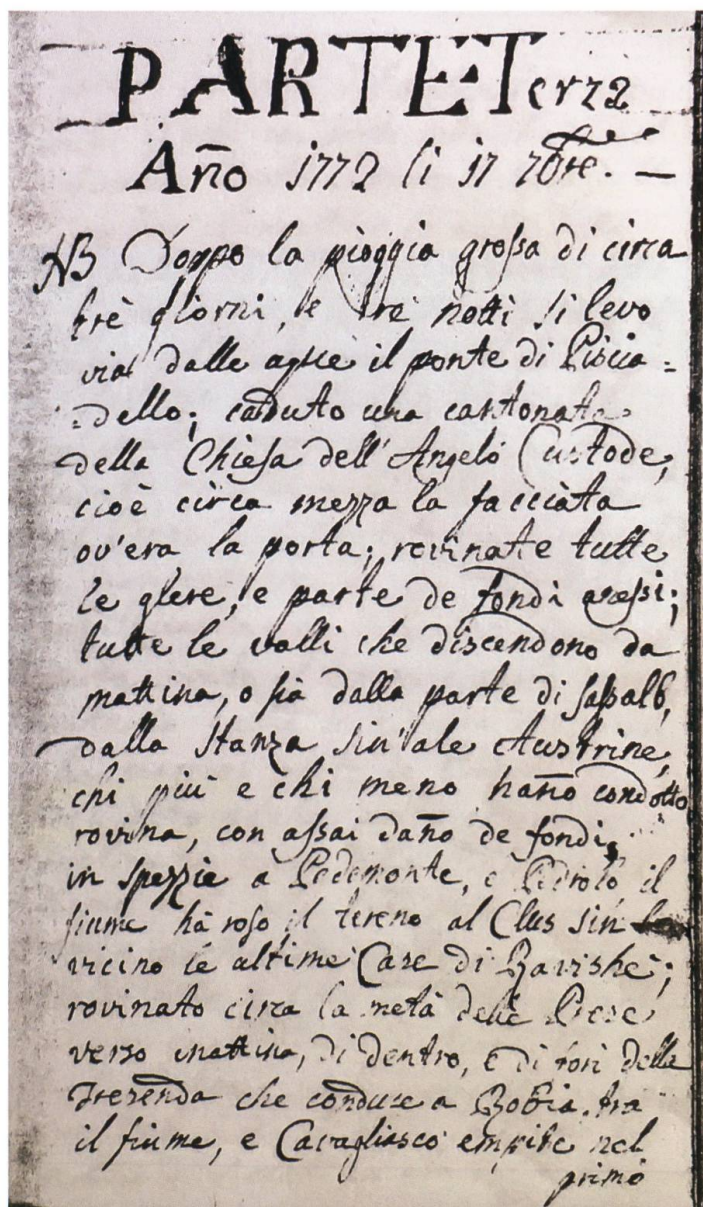 PARTE Terza
Año 1772 li 17 7bre. —
NB Doppo la pioggia grossa di circa
trè giorni, e trè notti si levo
via dalle aque il ponte di Piscia=
=dello; caduto una cantonata
della Chiesa dell'Angelo Custode,
cioè circa mezza la facciata
ov'era la porta; rovinate tutte
le glere, e parte de fondi apressi;
tutte le valli che discendono da
mattina, o sia dalla parte di Sassalb,
dalla Stanza sin'ale Austrine,
chi più e chi meno hano condotto
rovina, con assai dano de fondi,
in spezzie a Pedemonte, e Pedrolo il
fiume hà roso il tereno al Clus sin
vicino le ultime Case di Ravishè;
rovinato circa la metà delle Prese
verso mattina, di dentro, e di fori della
Tresenda che conduce a Robia. tra
il fiume, e Cavagliasco empite nel
primo